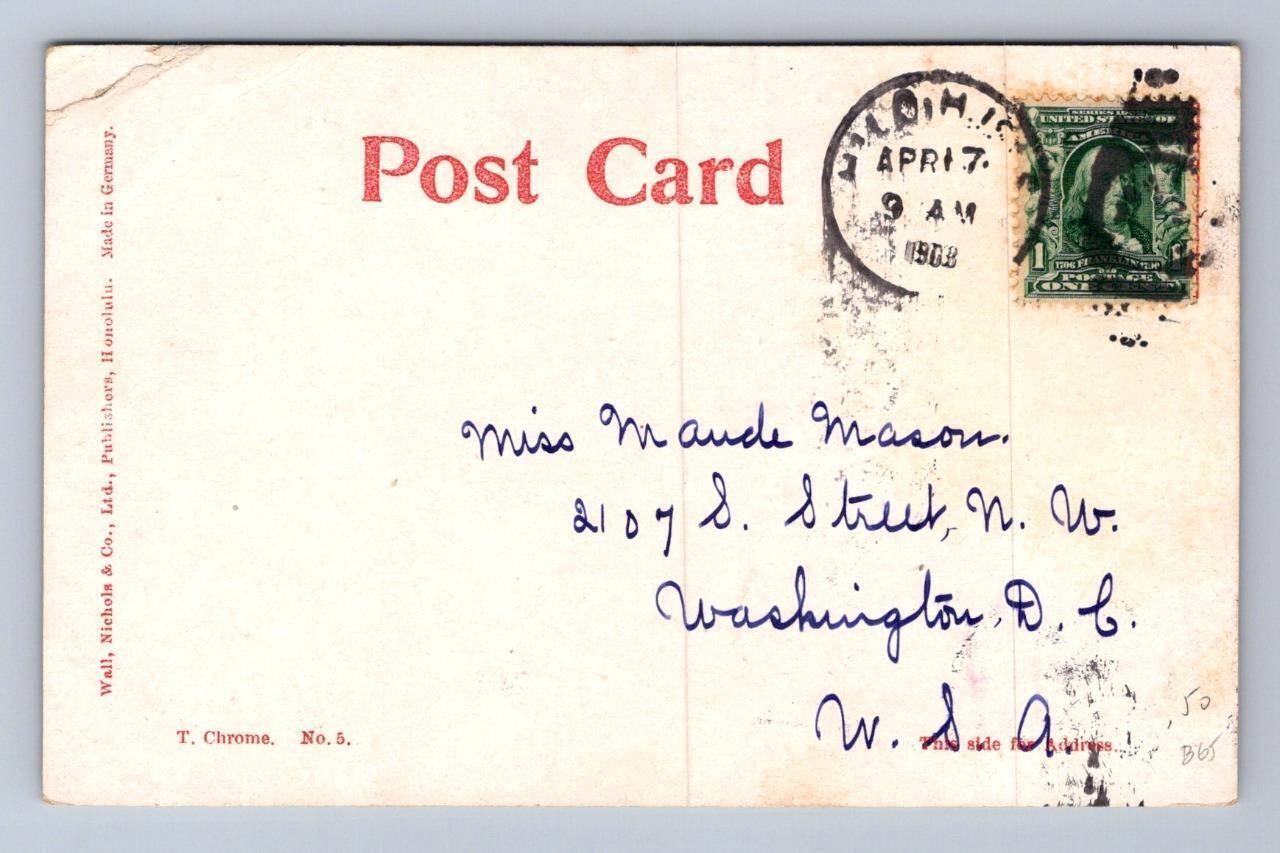 Post Card
HILO, H.I.
APR 17.
9 AM
1908
SERIES
UNITED STATES OF
AMERICA
1
1706 FRANKLIN 1790
POSTAGE
ONE CENT
Wall, Nichols & Co., Ltd., Publishers, Honolulu. Made in Germany.
Miss Maude Mason.
2107 S. Street, N. W.
Washington, D. C.
U. S. A.
T. Chrome. No. 5.
This side for Address
.50
B65